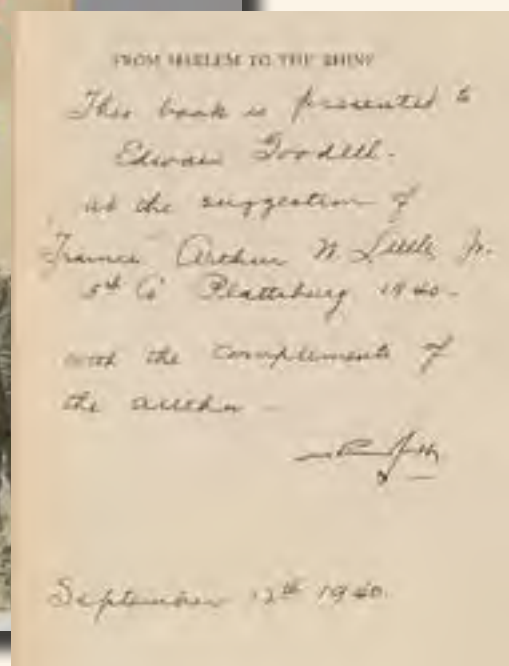 FROM HARLEM TO THE RHINE
This book is presented to
Edward Goodell.
at the suggestion of
Trainee Arthur W Little Jr.
5th Co Plattsburg 1940.
with the complements of
the author —
September 12th 1940.